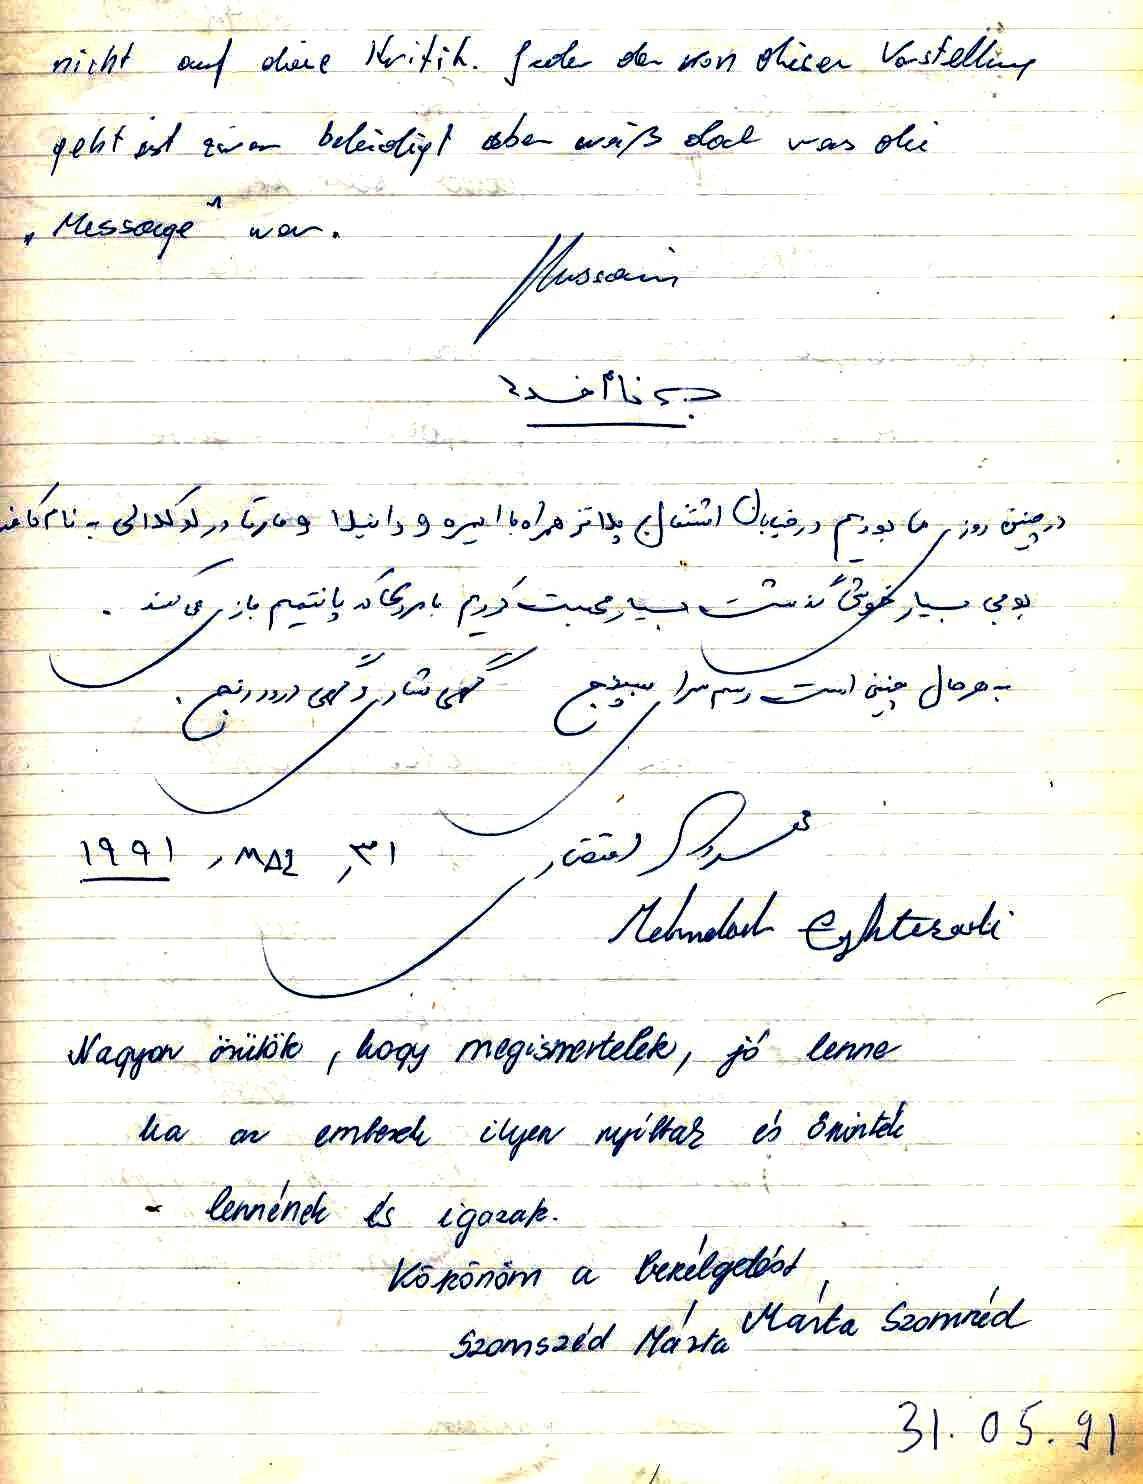 nicht auf diese Kritik. Jeder der von dieser Vorstellung
geht ist zwar beleidigt aber weiß doch was die
„Message" war.
Hussain
به نام خدا
در چنین روزی ما بودیم در خیابان اشتغال تآتر همراه با امیره و دانیلا و مارتا در لوکالی به نام کافه
بومی بسیار خوش گذشت بسیار صحبت کردیم با مردی که پانتمیم بازی می‌کند .
به هر حال چنین است رسم سرا سپنج گهی شاد و گهی درد و رنج .
۳۱, MAI, ۱۹۹۱
Mehrdad
Nagyon örülök, hogy megismertelek, jó lenne
ha az emberek ilyen nyíltak és őszinték
lennének és igazak.
Köszönöm a beszélgetést
Szomszéd Márta Márta Szomszéd
31.05.91